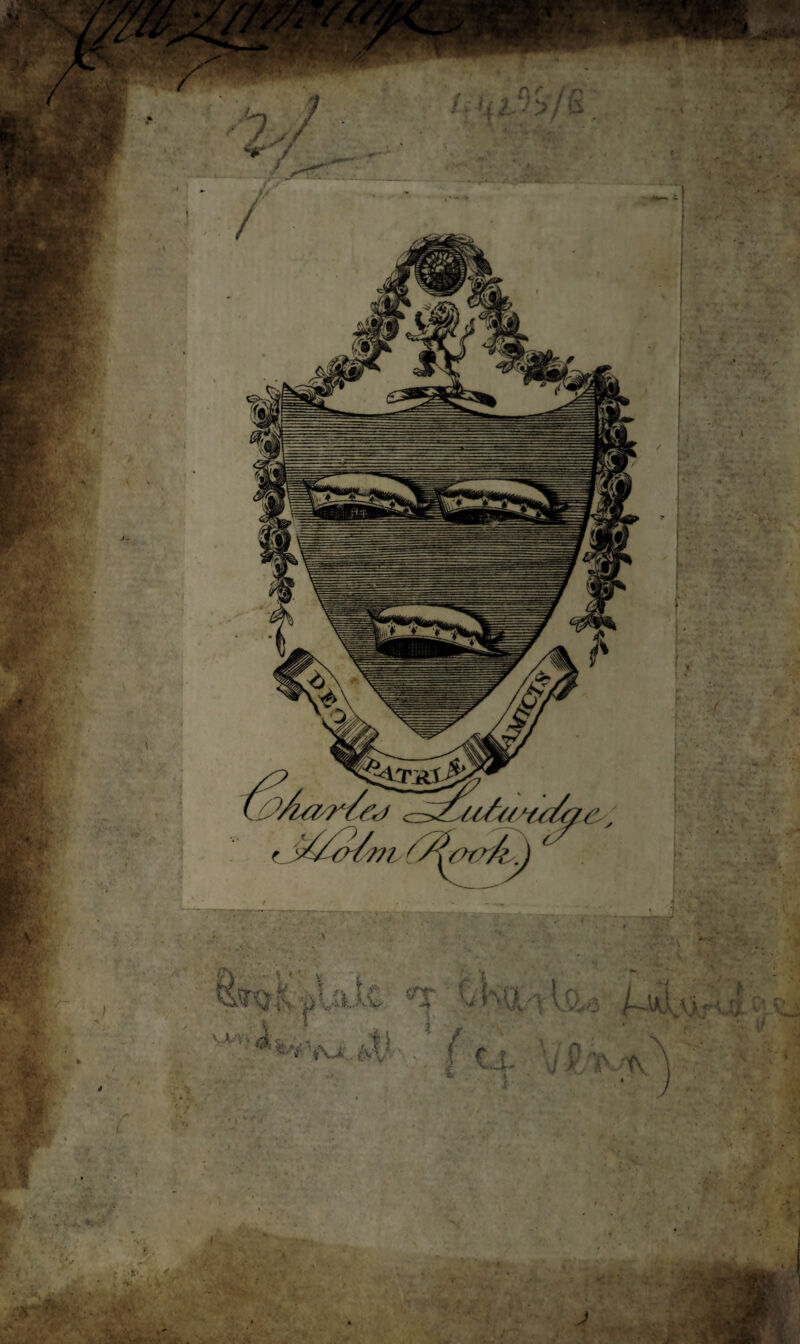 2/
44295/B
DEO PATRIÆ AMICIS
Charles Lutwidge,
Holm Rook.
Bookplate of Charles Lutwidge
underneath (cf Venn)